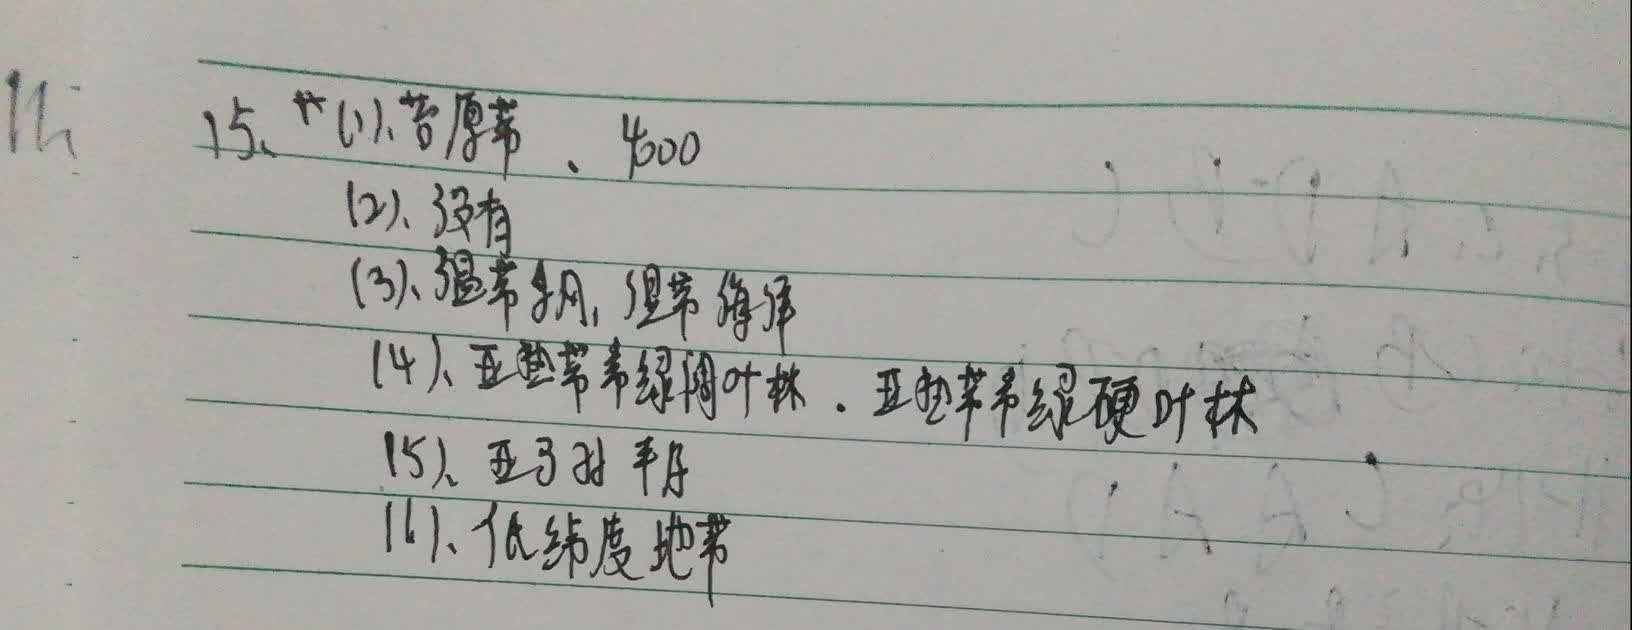 15、(1)、苔原带、4600
(2)、没有
(3)、温带季风,温带海洋
(4)、亚热带常绿阔叶林.亚热带常绿硬叶林
(5)、亚马孙平原
(6)、低纬度地带